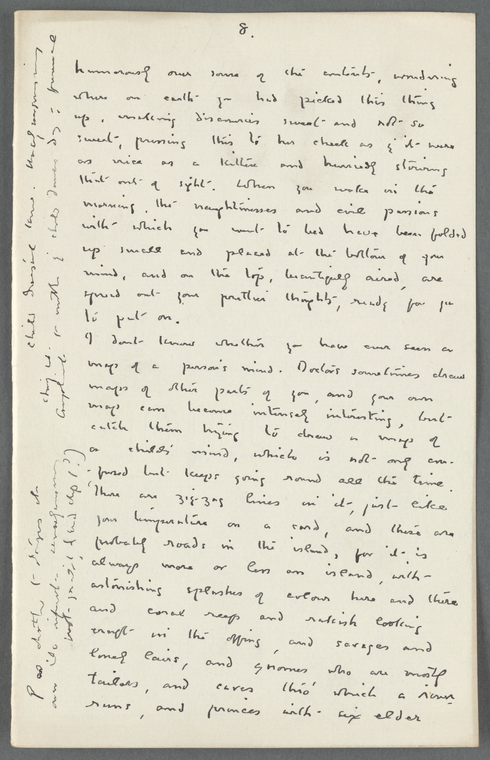 8.
humorously over some of the contents, wondering
where on earth you had picked this thing
up, making discoveries sweet and not so
sweet, pressing this to her cheek as if it were
as nice as a kitten and hurriedly stowing
that out of sight. When you wake in the
morning, the naughtinesses and evil passions
with which you went to bed have been folded
up small and placed at the bottom of your
mind, and on the top, beautifully aired, are
spread out your prettier thoughts, ready for you
to put on.
I don't know whether you have ever seen a
map of a person's mind. Doctors sometimes draw
maps of other parts of you, and your own
map can become intensely interesting, but
catch them trying to draw a map of
a child's mind, which is not only con-
fused but keeps going round all the time.
There are zig-zag lines in it, just like
your temperature on a card, and these are
probably roads in the island, for it is
always more or less an island, with
astonishing splashes of colour here and there
and coral reefs and rakish looking
craft in the offing, and savages and
lonely lairs, and gnomes who are mostly
tailors, and caves thro' which a river
runs, and princes with six elder
child
mother